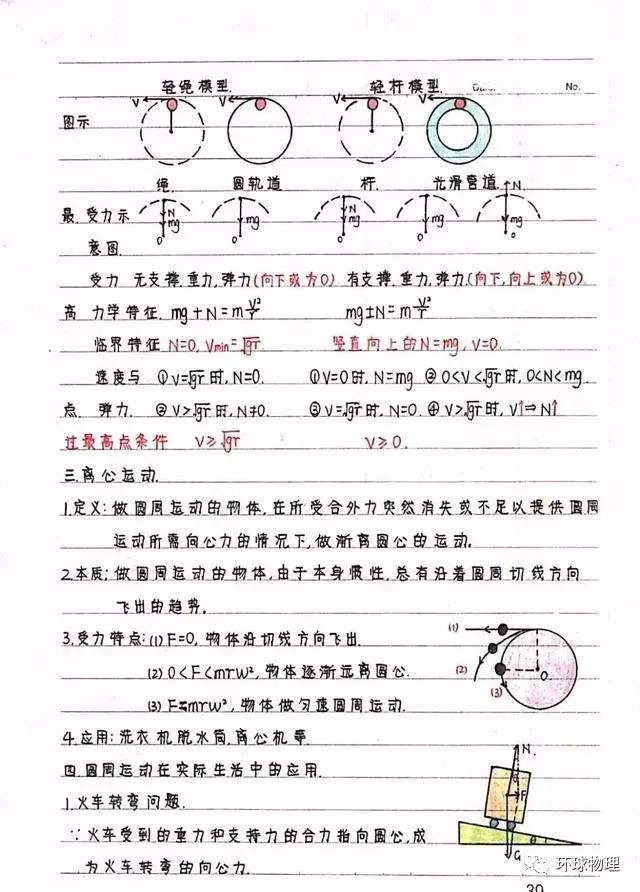 轻绳模型. 轻杆模型. Date. No.
V V V V
图示
绳. 圆轨道 杆. 光滑管道. N
最. 受力示 N mg O mg O N mg O mg O mg O
意图.
受力 无支撑,重力,弹力(向下或为0) 有支撑,重力,弹力(向下,向上或为0)
高 力学特征. mg+N=m V²/r mg±N=m V²/r
临界特征 N=0, Vmin=√gr. 竖直向上的N=mg, V=0.
速度与 ①V=√gr时,N=0. ①V=0时,N=mg ②0<V<√gr时,0<N<mg.
点. 弹力. ②V>√gr时,N≠0. ③V=√gr时,N=0. ④V>√gr时,V↑⇒N↑
过最高点条件 V≥√gr V≥0.
三.离心运动.
1.定义:做圆周运动的物体,在所受合外力突然消失或不足以提供圆周
运动所需向心力的情况下,做渐离圆心的运动.
2.本质:做圆周运动的物体,由于本身惯性,总有沿着圆周切线方向
飞出的趋势.
3.受力特点:(1) F=0, 物体沿切线方向飞出. (1)
(2) 0<F<mrω², 物体逐渐远离圆心. (2) O
(3) F=mrω², 物体做匀速圆周运动. (3)
4.应用:洗衣机脱水筒.离心机等
四.圆周运动在实际生活中的应用. N
1.火车转弯问题. F
∵火车受到的重力和支持力的合力指向圆心,成 θ
为火车转弯的向心力. G 环球物理
39